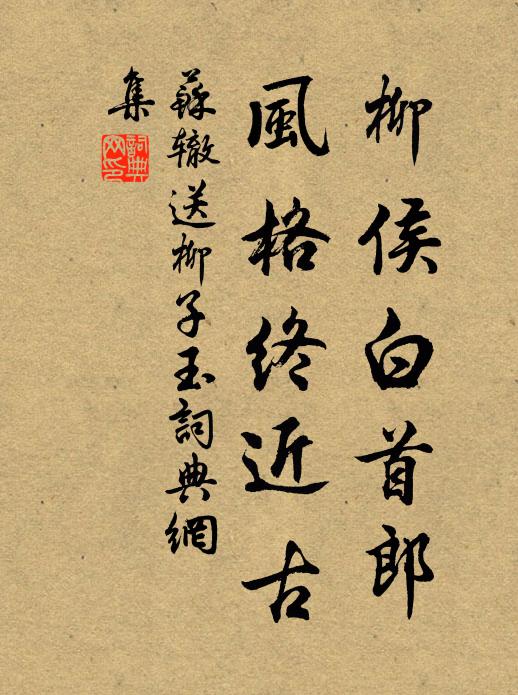 柳侯白首郎
風格終近古
蘇辙送柳子玉詞典網
集
詞典
网印